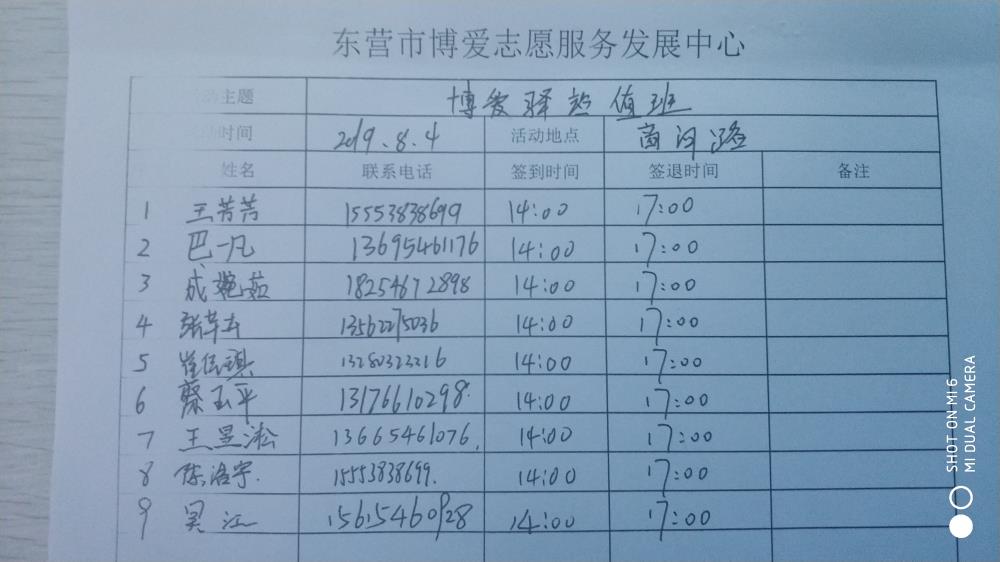 东营市博爱志愿服务发展中心
活动主题 博爱驿站值班
活动时间 2019.8.4 活动地点 茵河路
姓名 联系电话 签到时间 签退时间 备注
1 王芳芳 15553838699 14:00 17:00
2 巴一凡 13695461176 14:00 17:00
3 成艳茹 18254672898 14:00 17:00
4 13562275036 14:00 17:00
5 13280323216 14:00 17:00
6 蔡玉平 13176610298. 14:00 17:00
7 王昱淞 13665461076. 14:00 17:00
8 陈洛宇. 15553838699. 14:00 17:00
9 吴江 15615460928 14:00 17:00
SHOT ON MI 6
MI DUAL CAMERA